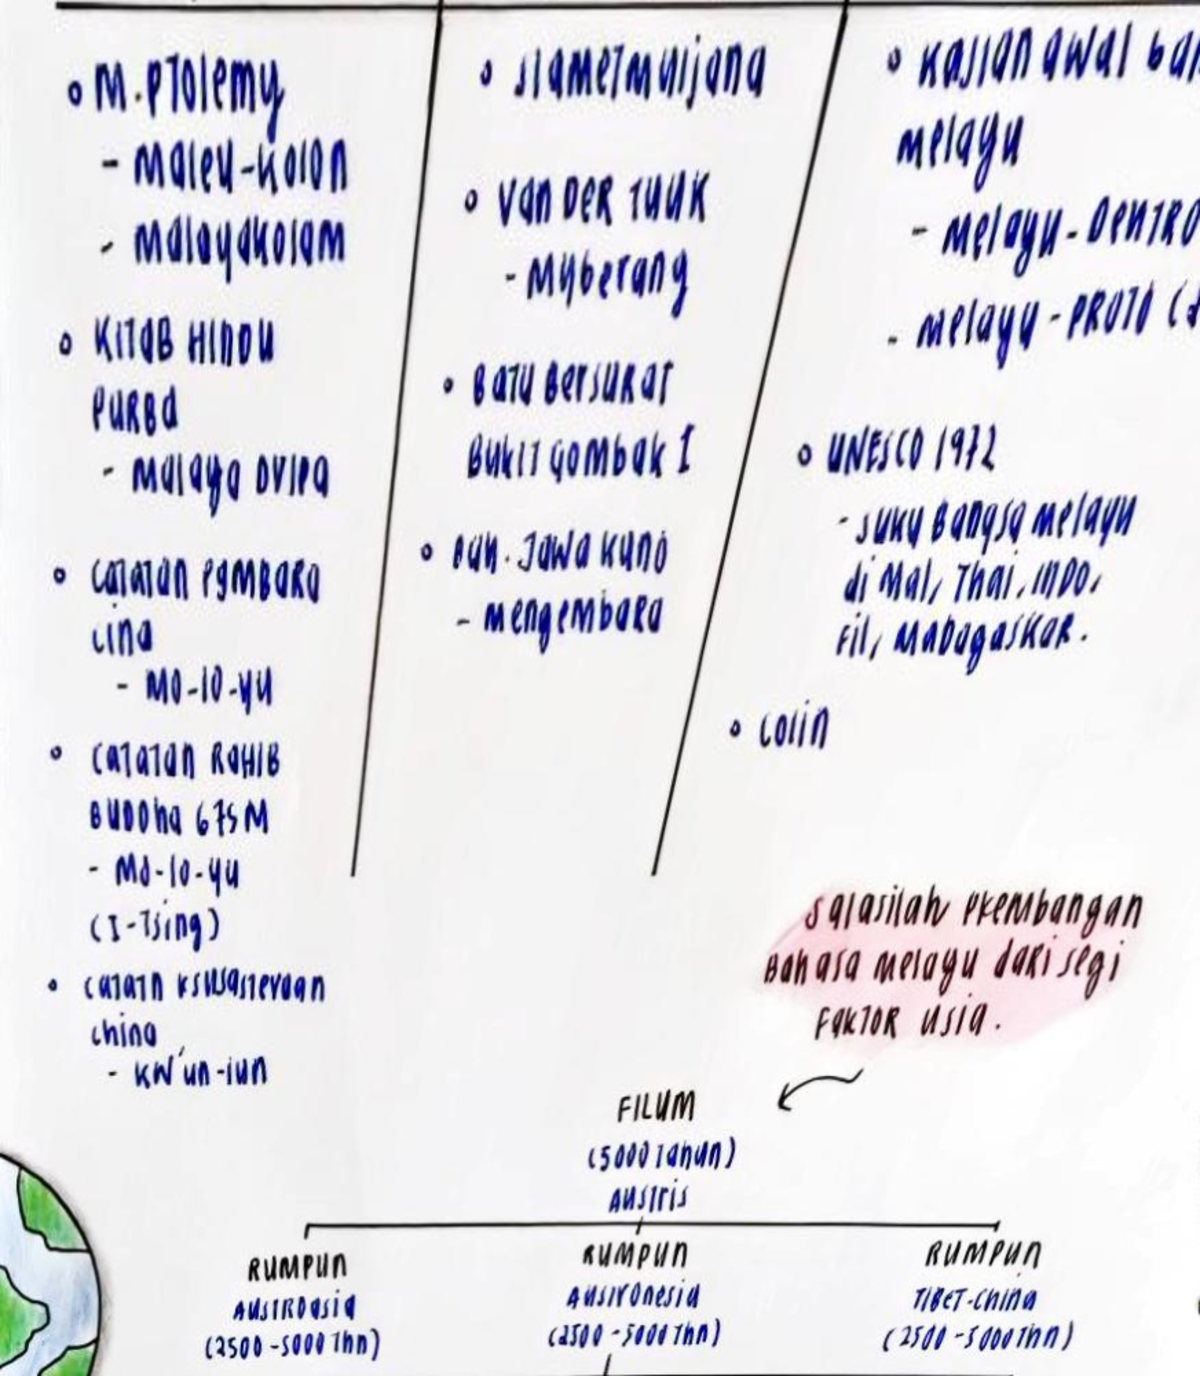 • M. PTolemy
- Maleu-Kolon
- Malayakolam
• KITAB HINDU
PURBA
- Malaya DVIPA
• CATATAN PGMBARA
CINA
- MO-lo-yu
• CATATAN RAHIB
BUDDha 675 M
- Ma-lo-yu
(I-Tsing)
• CATATN KSUSASTERAAN
China
- KW'un-lun
• SlameTmuljana
• Van DER TUUK
- Myberang
• BATU BerSURAT
BUKIT Gombak I
• Bah. JAWA KUNO
- mengembara
• Kajian awal ban
melayu
- Melayu-DeuTRO
- Melayu-PROTO (2
• UNESCO 1972
- Suku Bangsa melayu
di Mal, Thai, INDO,
Fil, Madagaskar.
• Colin
Salasilah Pkembangan
Bahasa Melayu dari segi
FAKTOR USIA.
FILUM
(5000 Tahun)
AUSTRIS
RUMPUN
AUSTROasia
(2500-5000 Thn)
RUMPUN
AUSTROnesia
(2500-5000 Thn)
RUMPUN
TIBET-China
(2500-5000 Thn)